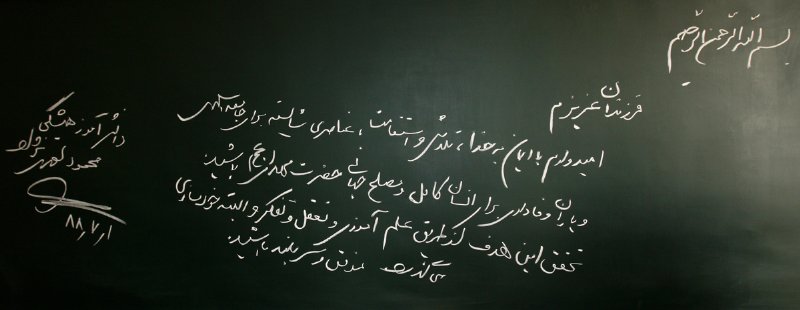 بسم الله الرحمن الرحیم
فرزندان عزیزم
امیدوارم با ایمان به خدا، تلاش و استقامت، عناصری شایسته برای جامعه
و یاران وفاداری برای انسان کامل و مصلح جهانی حضرت مهدی عج باشید.
تحقق این هدف از طریق علم آموزی و تعقل و تفکر و البته خودسازی
می‌گذرد. موفق و سربلند باشید.
دانش آموز همیشگی
محمود احمدی نژاد
۸۸٫۷٫۱